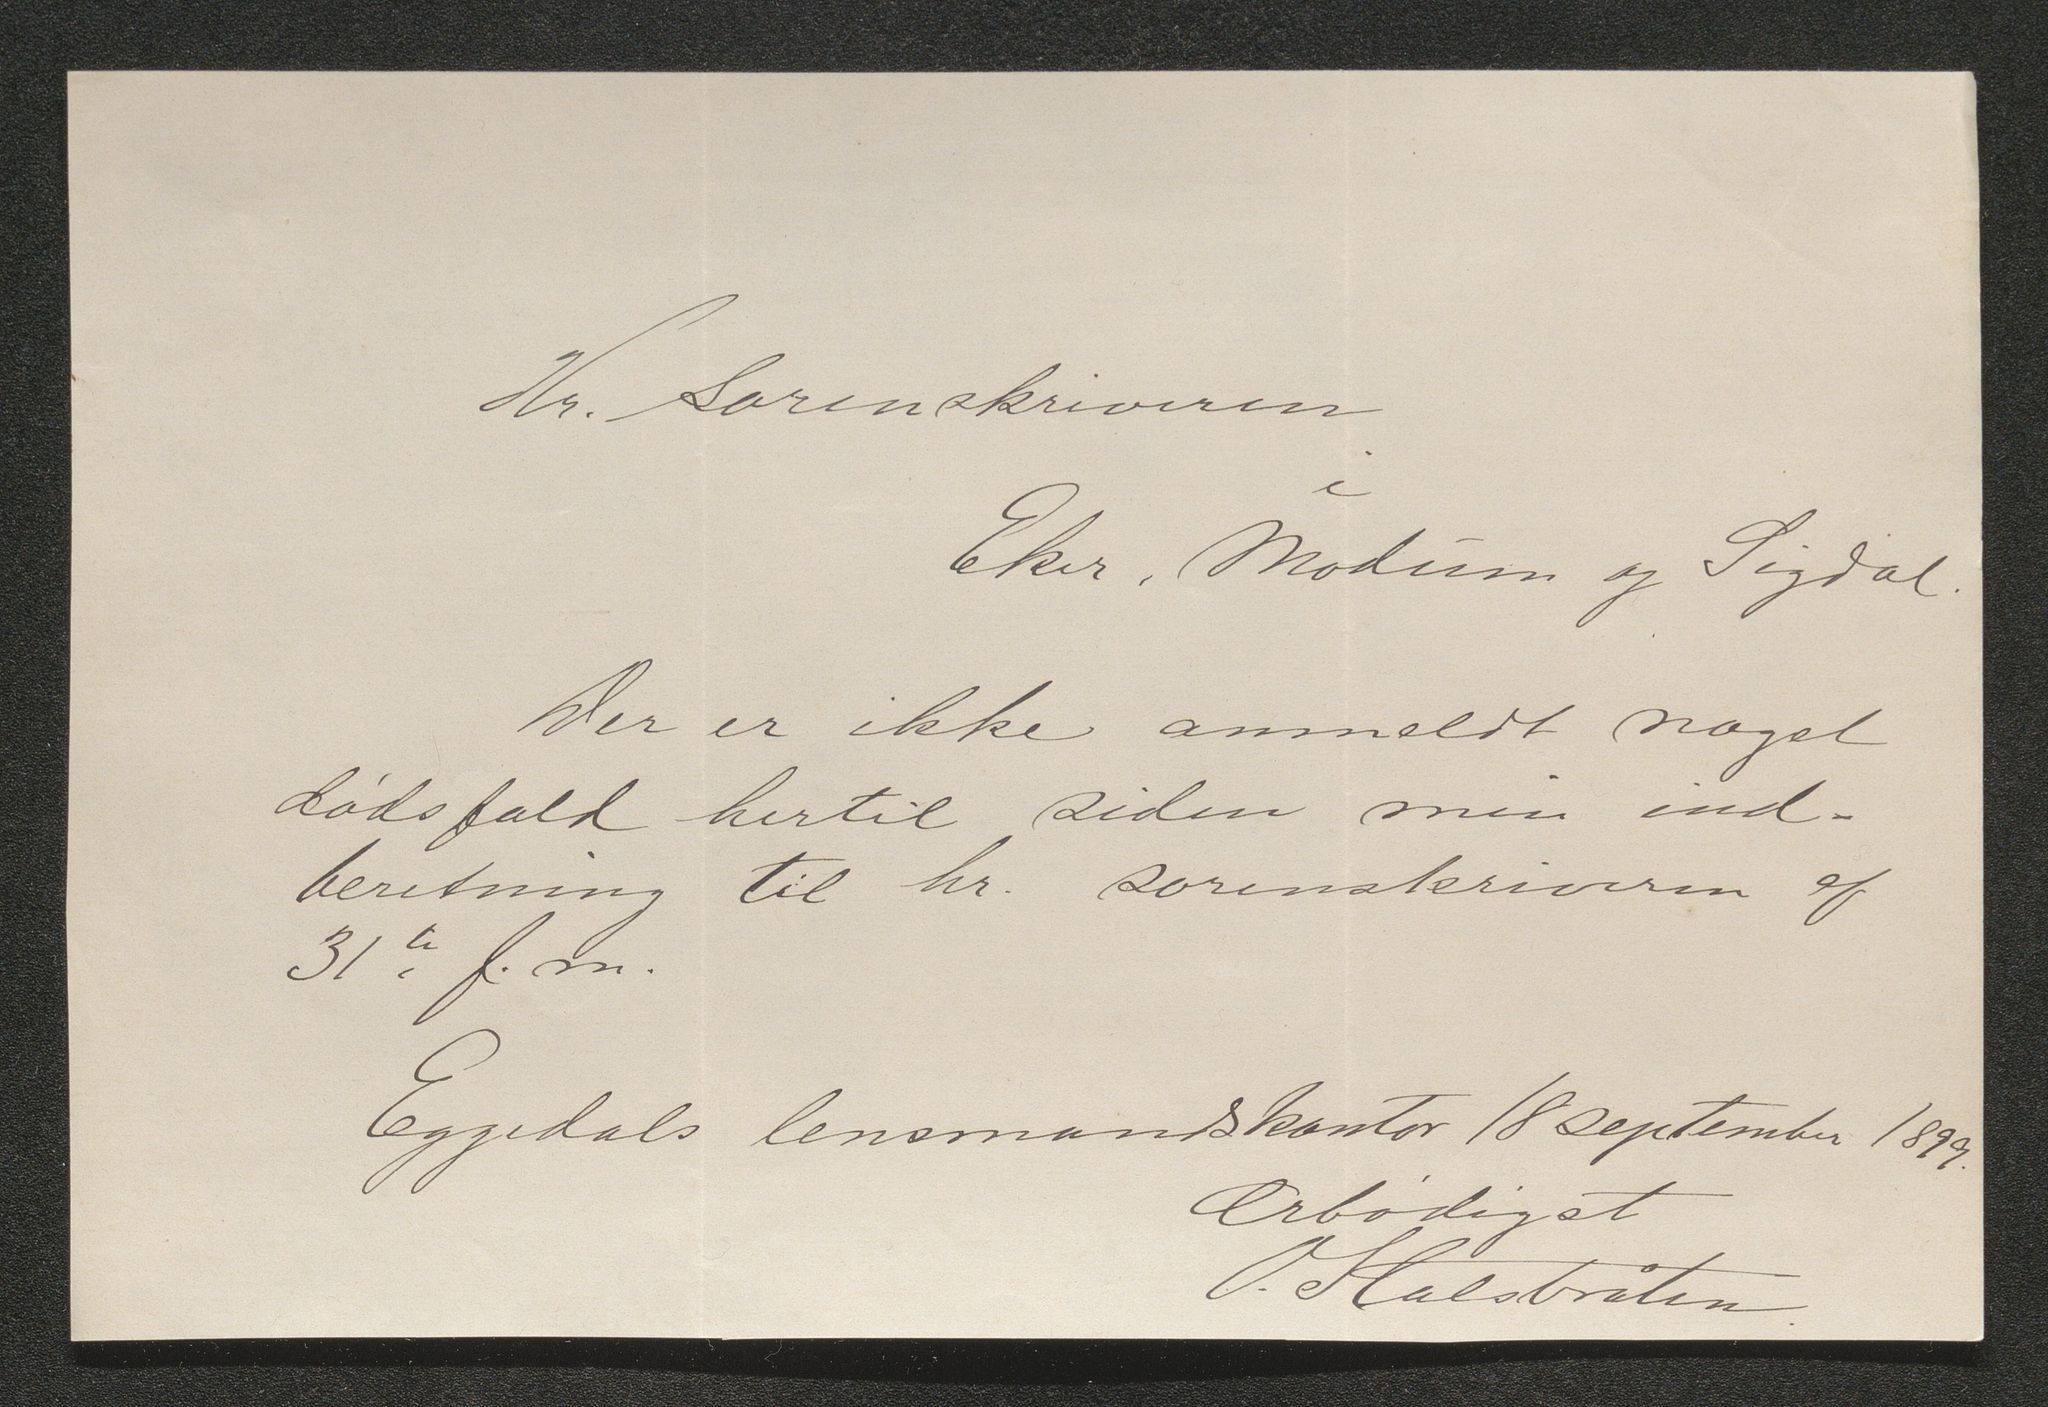 Hr. Sorenskriveren
i
Eker, Modum og Sigdal.
Der er ikke anmeldt noget
dödsfald hertil siden min ind-
beretning til hr. sorenskriveren af
31te f. m.
Eggedals lensmandskontor 18 september 1899.
Ærbödigst
O. Halsbråten.